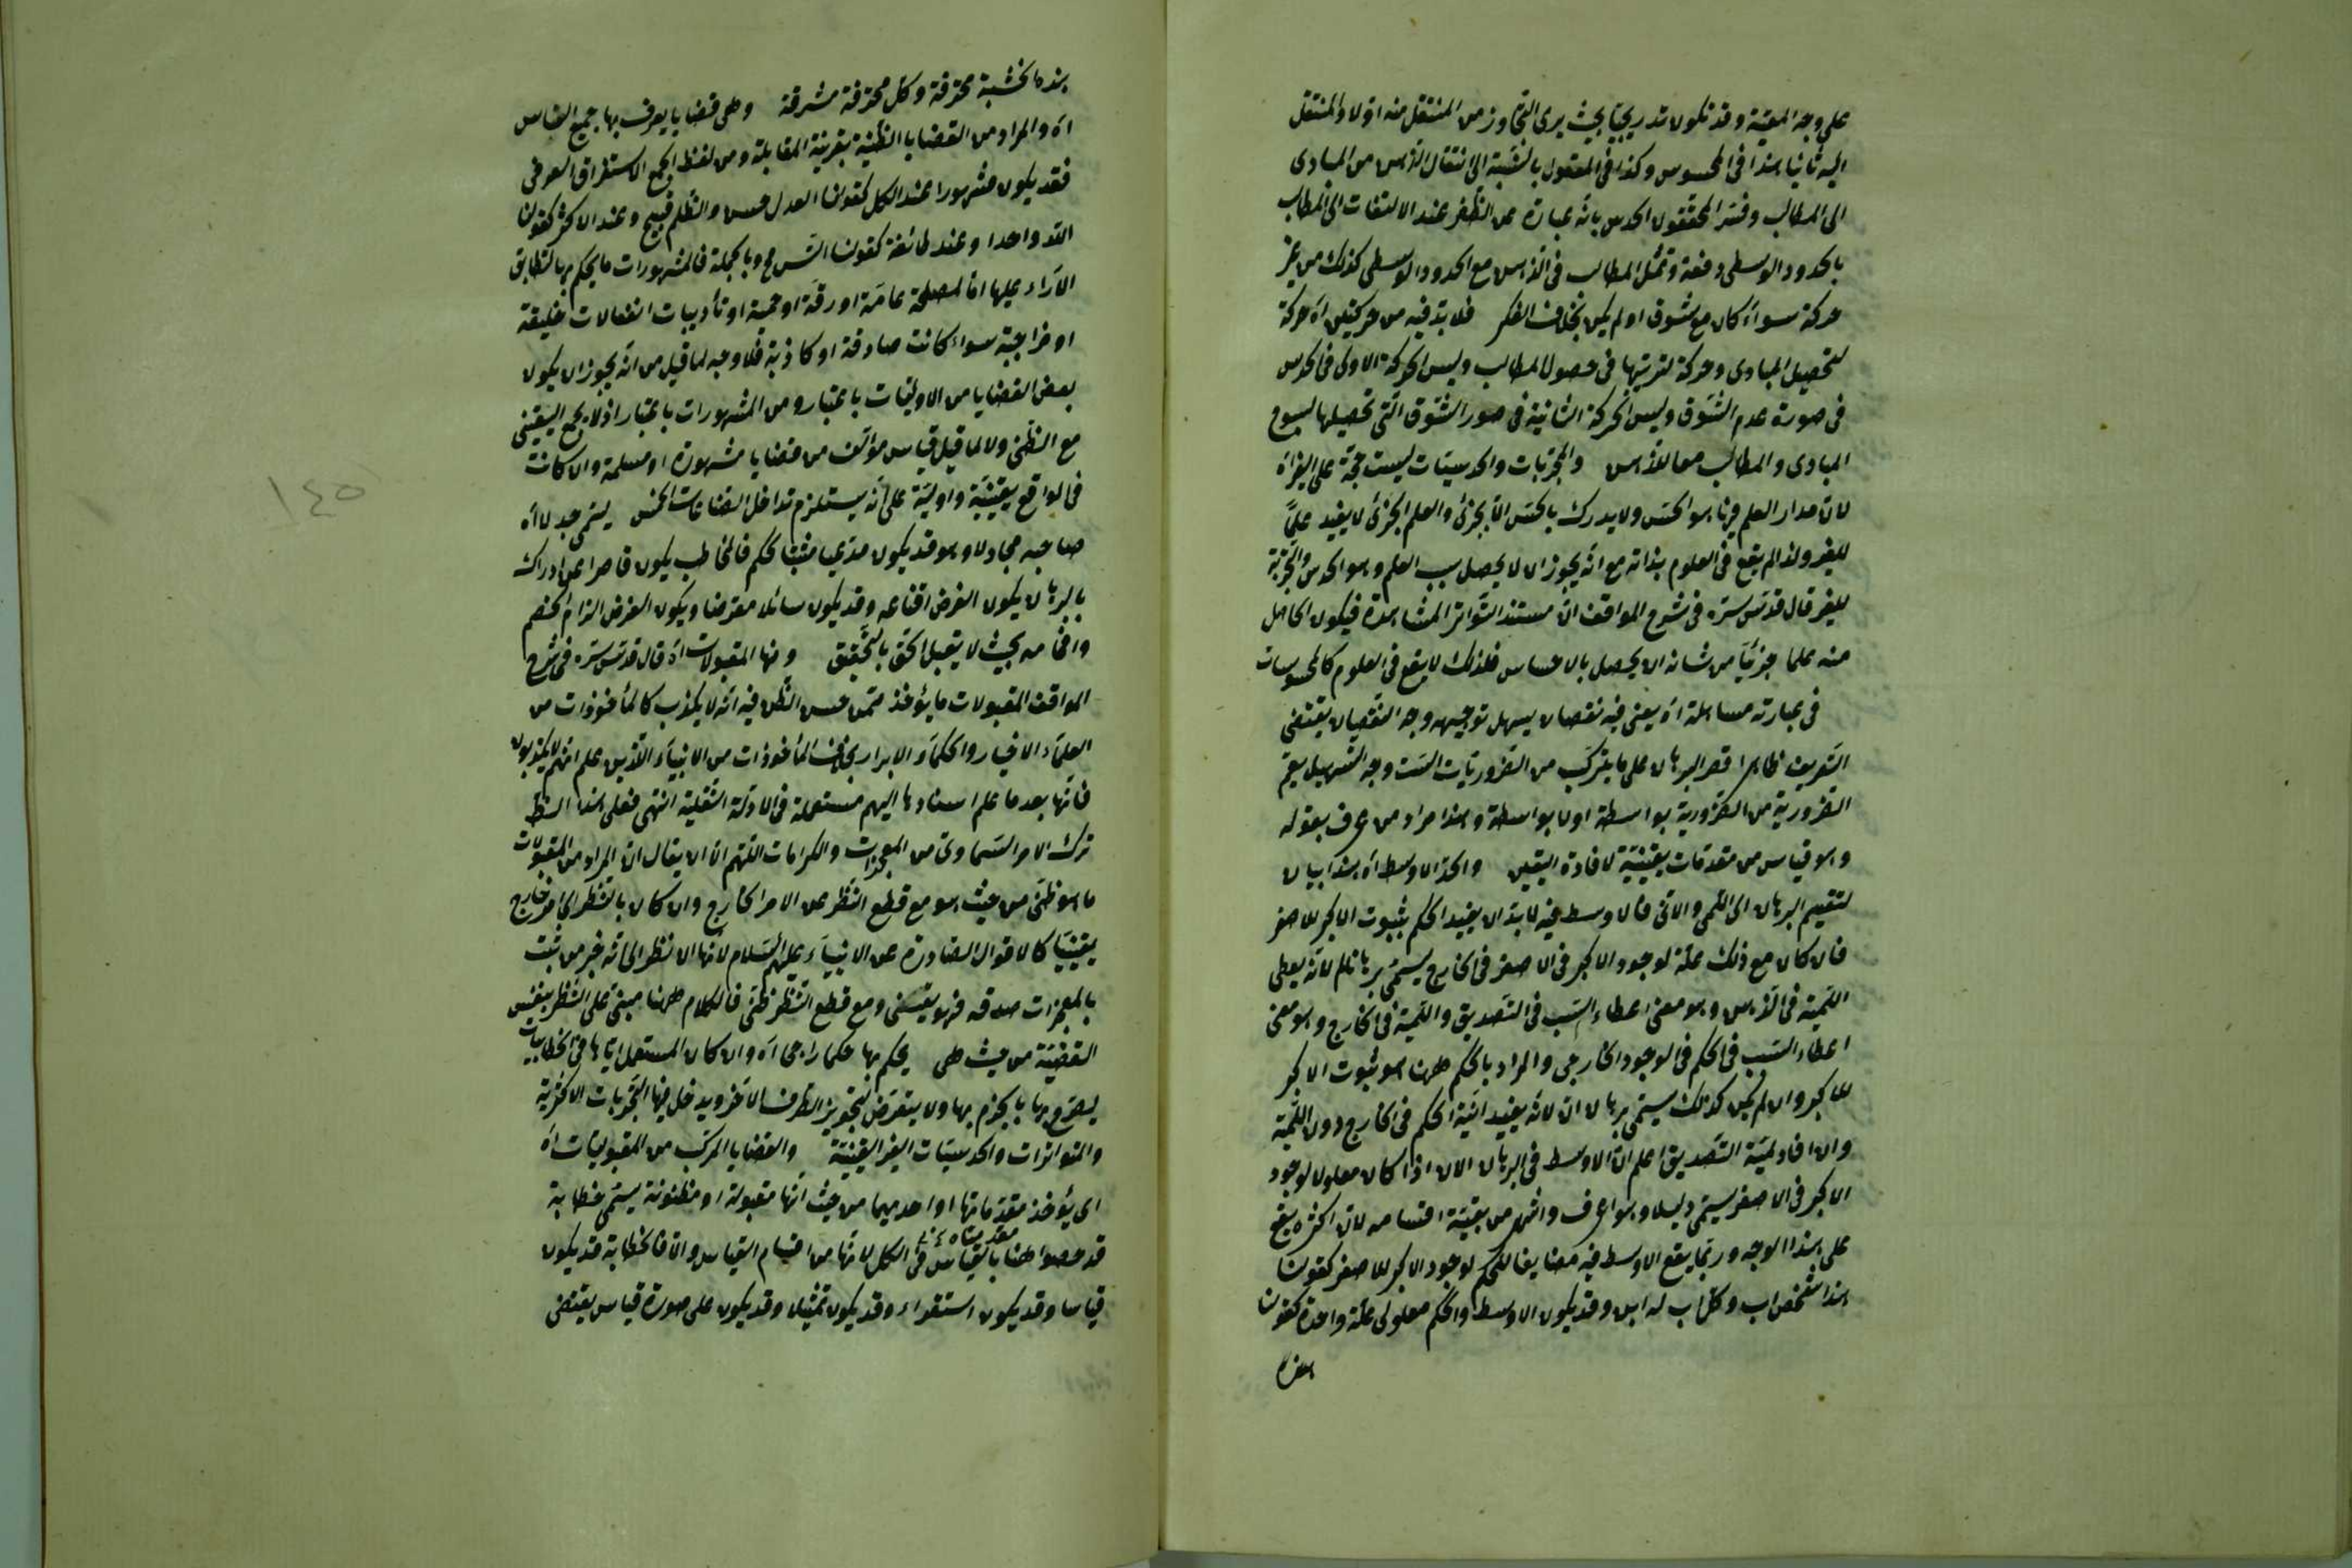 على وجه المعيّة وقد تكون تدريجيّا بحيث يرى التجاوز من المنتقل منه اوّلا والمنتقل
اليه ثانيا هذا فى المحسوس وكذا فى المعقول بالنّسبة الى انتقال الذّهن من المبادى
الى المطالب وفسّر المحقّقون الحدس بانّه عبارة عن الظّفر عند الالتفات الى المطالب
بالحدود الوسطى دفعة وتمثّل المطالب فى الذّهن مع الحدود الوسطى كذلك من غير
حركة سواء كان مع شوق او لم يكن بخلاف الفكر فلا بدّ فيه من حركتين اه حركة
لتحصيل المبادى وحركة لترتيبها فى حصول المطالب وليس الحركة الاولى فى الحدس
فى صورة عدم الشّوق وليس الحركة الثانية فى صور الشّوق الّتى تحصيلها لسنوح
المبادى والمطالب معا للذّهن والمجرّبات والحدسيّات ليست حجّة على الغير اه
لانّ مدار العلم فيها هو الحسّ ولا يدرك بالحسّ الّا الجزئى والعلم الجزئى لا يفيد علمًا
للغير ولذا لم يقع فى العلوم بذاته مع انّه يجوز ان لا يحصل سبب العلم وهو الحدس والتّجربة
للغير قال قدّس سرّه فى شرح المواقف انّ مستند التّواتر المشاهدة فيكون الحاصل
منه علما جزئيّا من شانه ان يحصل بالاحساس فلذلك لا يقع فى العلوم كالمحسوسات
فى عبارته مساهلة اه يعنى فيه نقصان يسهل توجيهه وجه النّقصان يقتضى
التّعريف ظاهرا قصر البرهان على ما يتركّب من الضّروريّات السّت وجه التّسهيل يعمّ
الضّرورية من الضّرورية بواسطة او لا بواسطة وهذا مراد من عرف بقوله
وهو قياس من مقدّمات يقينيّة لافادة اليقين والحدّ الاوسط اه هذا بيان
لتقسيم البرهان الى اللّمى والانّى فالاوسط فيه لا بدّ ان يفيد الحكم بثبوت الاكبر للاصغر
فان كان مع ذلك علّة لوجود الاكبر فى الاصغر فى الخارج يسمّى برهانا لم لانّه يعطى
اللّميّة فى الذّهن وهو معنى اعطاء السّبب فى التّصديق واللّميّة فى الخارج وهو معنى
اعطاء السّبب فى الحكم فى الوجود الخارجى والمراد بالحكم ههنا هو ثبوت الاكبر
للاكبر وان لم يكن كذلك يسمّى برهان ان لانّه يفيد انّية الحكم فى الخارج دون اللّميّة
وان افاد لميّة التّصديق اعلم انّ الاوسط فى البرهان الان اذا كان معلولا لوجود
الاكبر فى الاصغر يسمّى دليلا وهو اعرف واشهر من بقيّة اقسامه لانّ اكثره يقع
على هذا الوجه وربّما يقع الاوسط فيه مضايفا للحكم لوجود الاكبر للاصغر كقولنا
هذا شخص اب وكلّ اب له ابن وقد يكون الاوسط والحكم معلولى علّة واحدة كقولنا
هذه
هذه الخشبة محترقة وكلّ محترقة مشرقة وهى قضايا يعرف بها جميع النّاس
اه والمراد من القضايا الظّنيّة بقرينة المقابلة ومن لفظ الجمع الاستغراق العرفى
فقد يكون مشهورا عند الكل كقولنا العدل حسن والظّلم قبيح وعند الاكثر كقولنا
اللّه واحدا وعند طائفة كقولنا التّس مح وبالجملة فالمشهورات ما يحكم بها لتطابق
الآراء عليها امّا لمصلحة عامّة او رقّة او حميّة او تأديبات انفعالات خليقة
او مزاجيّة سواء كانت صادقة او كاذبة فلا وجه لما قيل من انّه يجوز ان يكون
بعض القضايا من الاوليّات باعتبار ومن المشهورات باعتبار اذ لا يجمع اليقينى
مع الظّنى ولا لما قيل قياس مؤلّف من قضايا مشهورة او مسلمة وان كانت
فى الواقع يقينيّة واوليّة على انّه يستلزم تداخل الصّناعات الخمس يسمّى جدلا اه
صاحبه مجادلا وهو قد يكون مدّعيا مثبتا لحكم فالمخاطب يكون قاصرا عن ادراك
بالبرهان يكون الغرض اقناعه وقد يكون سائلا معترضا ويكون الغرض الزام الخصم
وافحامه بحيث لا يقبل الحقّ بالتّحقيق ومنها المقبولات اه قال قدّس سرّه فى شرح
المواقف المقبولات ما يؤخذ ممّن حسن الظّن فيه انّه لا يكذب كالمأخوذات من
العلماء الاخيار والحكماء الابرار بخلاف المأخوذات من الانبياء الّذين علم انّهم لا يكذبون
فانّها بعد ما علم اسنادها اليهم مستعملة فى الادلّة النّقلية انتهى فعلى هذا النظ
ترك الامر السّماوىّ من المعجزات والكرامات اللّهم الّا ان يقال انّ المراد من المقبولات
ما هو ظنّى من حيث هو مع قطع النّظر عن الامر الخارج وان كان بالنّظر الى امر خارج
يقينيّا كالاقوال الصّادرة عن الانبياء عليهم السّلام لانّها الا نظر الى انّه خبر من ثبت
بالمعجزات صدقه فهو يقينى ومع قطع النّظر ظنّى فالكلام ههنا مبنىّ على النّظر بنفس
القضيّة من حيث هى يحكم بها حكما راجحا اه وان كان المستعمل ايّاها فى الخطابيّات
يصرّح بها بالجزم بها ولا يتعرّض لتجويز الطّرف الآخر ويدخل فيها التّجربات الاكثريّة
والمتواترات والحدسيّات الغير اليقينيّة والقضايا المركّب من المقبوليّات اه
اى يؤخذ مقدّماتها او احديهما من حيث انّها مقبولة او مظنونة يسمّى خطابة
قد خصوا ههنا بالقياس فى الكل لانّها من اقسام القياس والّا فالخطابة قد يكون
قياسا وقد يكون استقراء وقد يكون تمثيلا وقد يكون على صورة قياس يقتضى
١٤٥